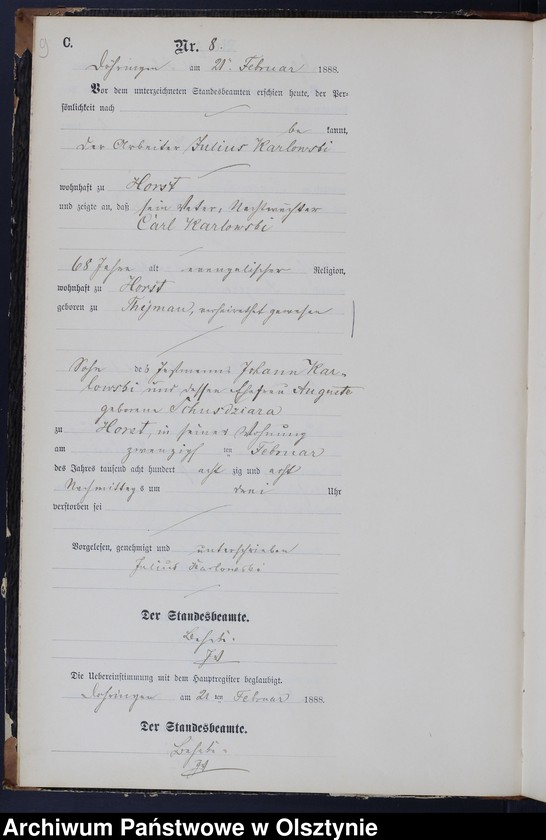 9
C.
Nr. 8.
Döhringen am 21ten Februar 1888.
Vor dem unterzeichneten Standesbeamten erschien heute, der Per-
sönlichkeit nach
be kannt,
der Arbeiter Julius Karlowski
wohnhaft zu Horst
und zeigte an, daß sein Vater, Nachtwächter
Carl Karlowski
68 Jahre alt evangelischer Religion,
wohnhaft zu Horst
geboren zu Thyman, verheirathet gewesen
Sohn des Johann Kar-
lowski und dessen Ehefrau Auguste
geborene
zu Horst, in seiner Wohnung
am zwanzigsten Februar
des Jahres tausend acht hundert acht zig und acht
Nachmittags um drei Uhr
verstorben sei
Vorgelesen, genehmigt und unterschrieben
Julius Karlowski
Der Standesbeamte.
Die Uebereinstimmung mit dem Hauptregister beglaubigt.
Döhringen am 21ten Februar 1888.
Der Standesbeamte.
Archiwum Państwowe w Olsztynie